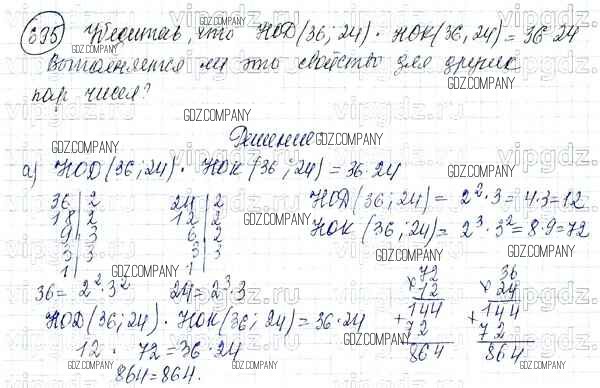 695 Убедитесь, что НОД(36; 24) · НОК(36, 24) = 36·24
Выполняется ли это свойство для других
пар чисел?
Решение:
а) НОД(36; 24) · НОК(36; 24) = 36·24
36|2 24|2
18|2 12|2
9|3 6|2
3|3 3|3
1| 1|
НОД(36; 24) = 2²·3 = 4·3=12
НОК(36; 24) = 2³·3² = 8·9=72
36= 2²·3² 24= 2³·3
НОД(36; 24) · НОК(36; 24) = 36·24
12 · 72 = 36·24
864=864.
72
× 12
144
+ 72
864
36
× 24
144
+ 72
864
GDZ.COMPANY
vipgdz.ru